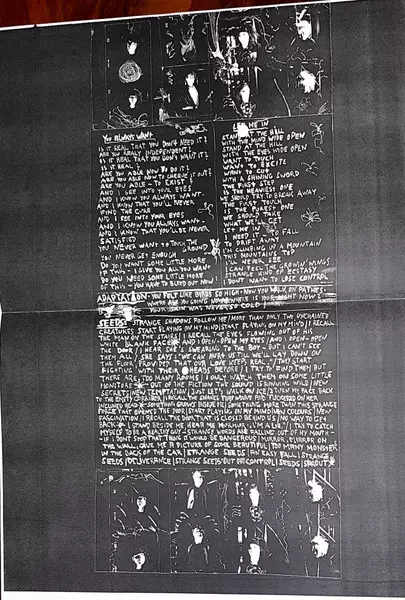 YOU ALWAYS WANT
IS IT REAL THAT YOU DON'T NEED IT?
ARE YOU REALLY INDEPENDENT?
IS IT REAL THAT YOU DON'T WANT IT?
IS IT REAL?
ARE YOU ABLE NOW TO DO IT?
ARE YOU ABLE NOW TO CREATE IT OUT?
ARE YOU ABLE - TO EXIST?
AND I SEE INTO YOUR EYES
AND I KNOW YOU ALWAYS WANT
AND I KNOW THAT YOU'LL NEVER
FIND THE CURE
AND I SEE INTO YOUR EYES
AND I KNOW YOU ALWAYS WANT
AND I KNOW THAT YOU'LL NEVER
SATISFIED
YOU NEVER WANT TO TOUCH THE
GROUND
YOU NEVER GET ENOUGH
DO YOU WANT SOME LITTLE MORE
OF THIS - I GIVE YOU ALL YOU WANT
DO YOU NEED SOME LITTLE MORE
OF THIS - YOU HAVE TO BLEED OUT NOW
ME IN
STAND AT THE HILL
WITH THE MIND WIDE OPEN
STAND AT THE HILL
WITH THE EYES WIDE OPEN
WANT TO TOUCH
WANT TO EXCITE
WANT TO CUT
WITH A SHINING SWORD
THE FIRST STEP
IS THE HEAVIEST ONE
WE SHOULD TRY TO BREAK AWAY
THE FIRST TOUCH
IS THE ONE
WE SHOULD TAKE
WHAT WE'LL GET
LET ME IN
I NEED IT FALL
TO DRIFT AWAY
I'M CLIMBING UP A MOUNTAIN
THIS MOUNTAINS TOP
I'LL NEVER SEE
I CAN FEEL THE GROWIN' WINGS
STRANGE KIND OF ECSTASY
I DON'T WANT TO LOSE CONTROL
ADAPTATION: YOU FELT LIKE BIRDS SO HIGH - NOW YOU WALK ON PATHES
WHERE ARE YOU GOING NOW WHERE IS YOUR NOW?
YOUR SKIN WAS NEVER SO COLD
SEEDS: STRANGE SHADOWS FOLLOW ME / MORE THAN ONLY TWO UNCHAINED
CREATURES START PLAYING ON MY MIND / START PLAYING ON MY MIND / I RECALL
THE MAN ON THE STAIRS / I RECALL THE EYES FLOWING OUT OF HIS
BLANK FACE AND I OPEN MY EYES / AND I OPEN - OPEN
THE DOOR / I HEAR SWEARING TO THE BOY - BUT I CAN'T SEE
THEM ALL / SHE SAYS: WE CAN HURT US TILL WE'LL LAY DOWN ON
THE FLOOR PROVIDED THAT OUR LOVE KEEPS REAL / THEY START
FIGHTING WITH THEIR HEADS BEFORE / I TRY TO FIND THEM BUT
THERE ARE TOO MANY ROOMS / I ONLY THEM ON SOME LITTLE
MONITORS / OUT OF THE FICTION THE SOUND IS RUNNING WILD / NEW
SECRETS / NEW TEMPTATION / JUST LET'S WALK ON ICE / I TURN MY FACE BACK
TO THE / I RECALL THE SNAKES THAT AND FLICKERED ON HER
SOMETHING GROWS INSIDE ME / SOMETHING MORE THAN THIS STRANGE
FORCE THAT OPENES THE DOOR / START PLAYING ON MY MIND / NEW COLOURS / NEW
FASCINATION / I RECALL THE DOOR THAT IS CLOSED BEHIND US / NO WAY TO GET
BACK / I STAND BESIDE ME HEAR ME MURMUR: I'M A LIE / I TRY TO CATCH
MYSELF TO BE A HEALTHY GUY - STRANGE WORDS ARE FALLING OUT OF MY MOUTH -
IF I DON'T STOP THAT THING IT WOULD BE DANGEROUS / MIRROR, MIRROR ON
THE WALL, GIVE ME A PICTURE OF SOME BEAUTIFUL / TOO MANY MONSTER
IN THE BACK OF THE CAR / STRANGE SEEDS / AN EASY FALL / STRANGE
SEEDS / DELIVERANCE / STRANGE SEEDS / OUT OF CONTROL / SEEDS / SPROUT